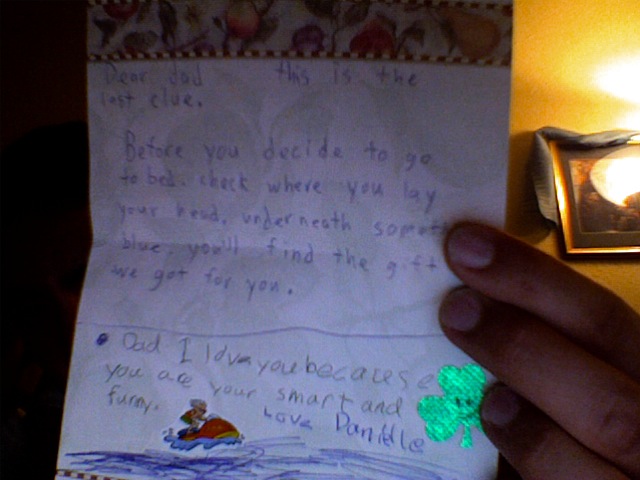 Dear dad this is the
last clue.
Before you decide to go
to bed. check where you lay
your head. underneath someth
blue. you'll find the gift
we got for you.
Dad I love you because
you are your smart and
funny.
Love Danielle